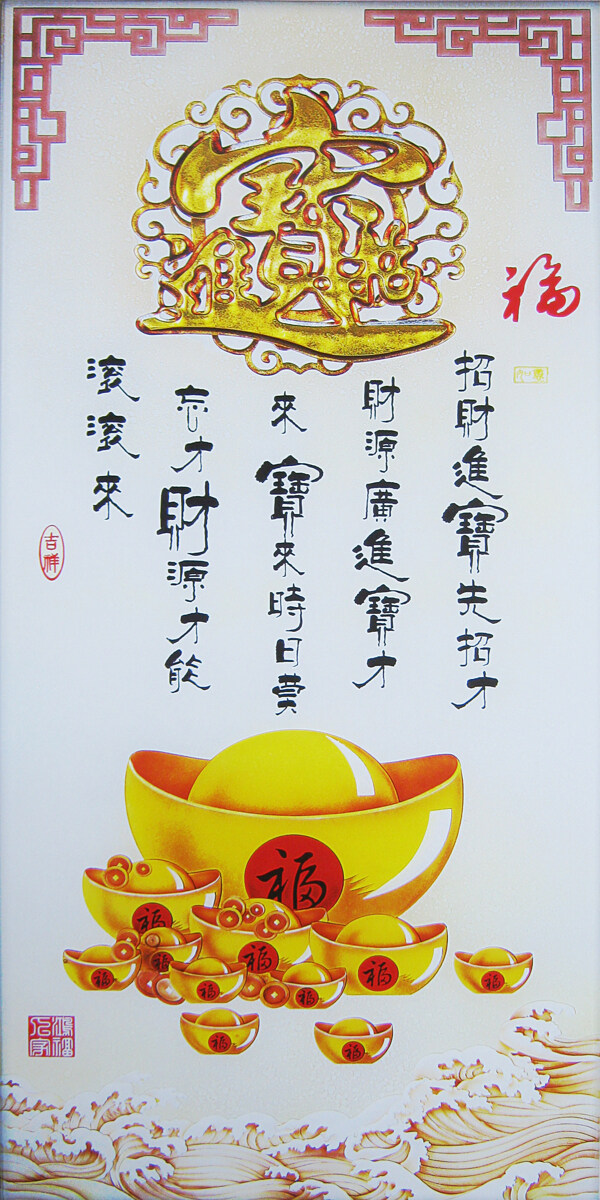 招財進寶
福
如意
招財進寶先招才
財源廣進寶才
來寶來時日莫
忘才財源才能
滾滾來
吉祥
福
福
福
福
福
福
福
福
福
福
福
鴻福人家